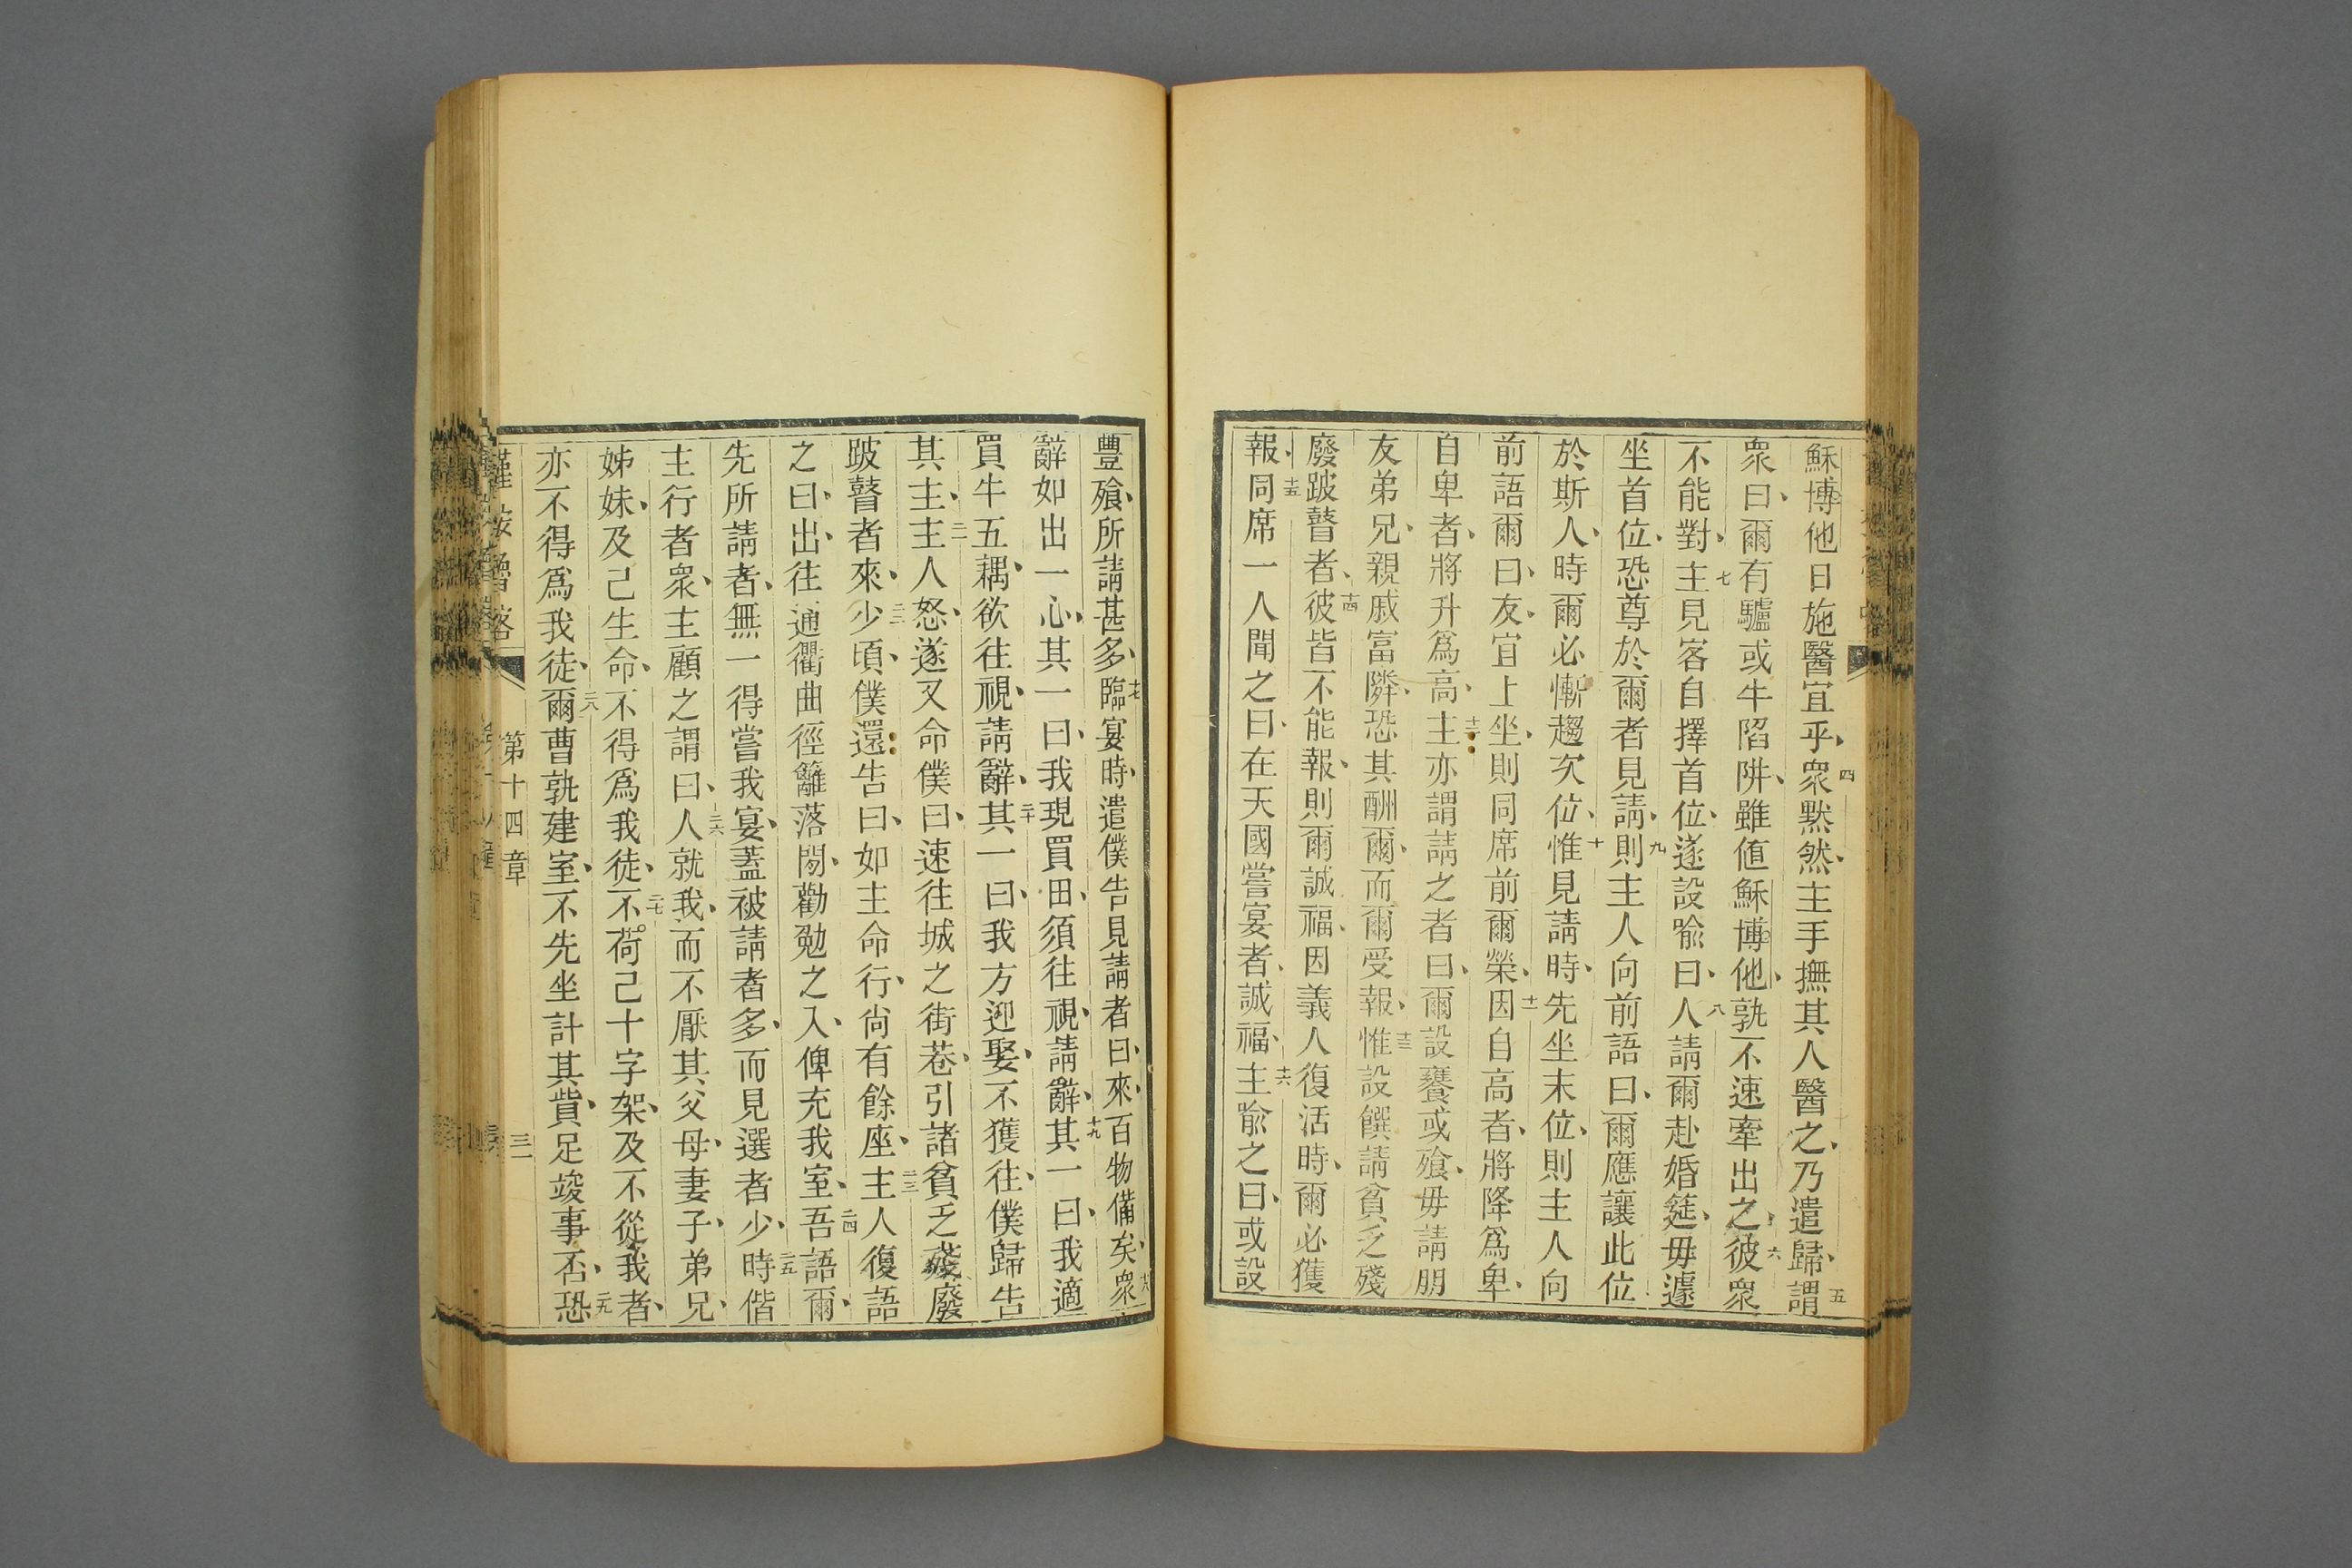 穌博他日施醫宜乎、四衆黙然、主手撫其人醫之、乃遣歸、五謂
衆曰、爾有驢或牛陷阱、雖値穌博他、孰不速牽出之、六彼衆
不能對、七主見客自擇首位、遂設喩曰、八人請爾赴婚筵、毋遽
坐首位、恐尊於爾者見請、九則主人向前語曰、爾應讓此位
於斯人、時爾必慚趨次位、十惟見請時、先坐末位、則主人向
前語爾曰、友、宜上坐、則同席前爾榮、十一因自高者、將降爲卑、
自卑者、將升爲高、十二主亦謂請之者曰、爾設饔或飱、毋請朋
友弟兄、親戚富隣、恐其酬爾、而爾受報、十三惟設饌請貧乏殘
廢跛瞽者、十四彼皆不能報、則爾誠福、因義人復活時、爾必獲
報、十五同席一人聞之曰、在天國嘗宴者、誠福、十六主喩之曰、或設
豐飱、所請甚多、十七臨宴時、遣僕告見請者曰、來、百物備矣、十八衆
辭如出一心、其一曰、我現買田、須往視、請辭、十九其一曰、我適
買牛五耦、欲往視、請辭、二十其一曰、我方迎娶、不獲往、僕歸告
其主、二一主人怒、遂又命僕曰、速往城之街巷、引諸貧乏殘廢
跛瞽者來、二二少頃、僕還告曰、如主命行、尚有餘座、二三主人復語
之曰、出、往通衢曲徑籬落間、勸勉之入、俾充我室、二四吾語爾、
先所請者、無一得嘗我宴、蓋被請者多、而見選者少、二五時偕
主行者衆、主顧之謂曰、二六人就我、而不厭其父母、妻子、弟兄、
姊妹、及己生命、不得爲我徒、二七不荷己十字架、及不從我者、
亦不得爲我徒、二八爾曹孰建室、不先坐計其貲、足竣事否、二九恐
第十四章 三一